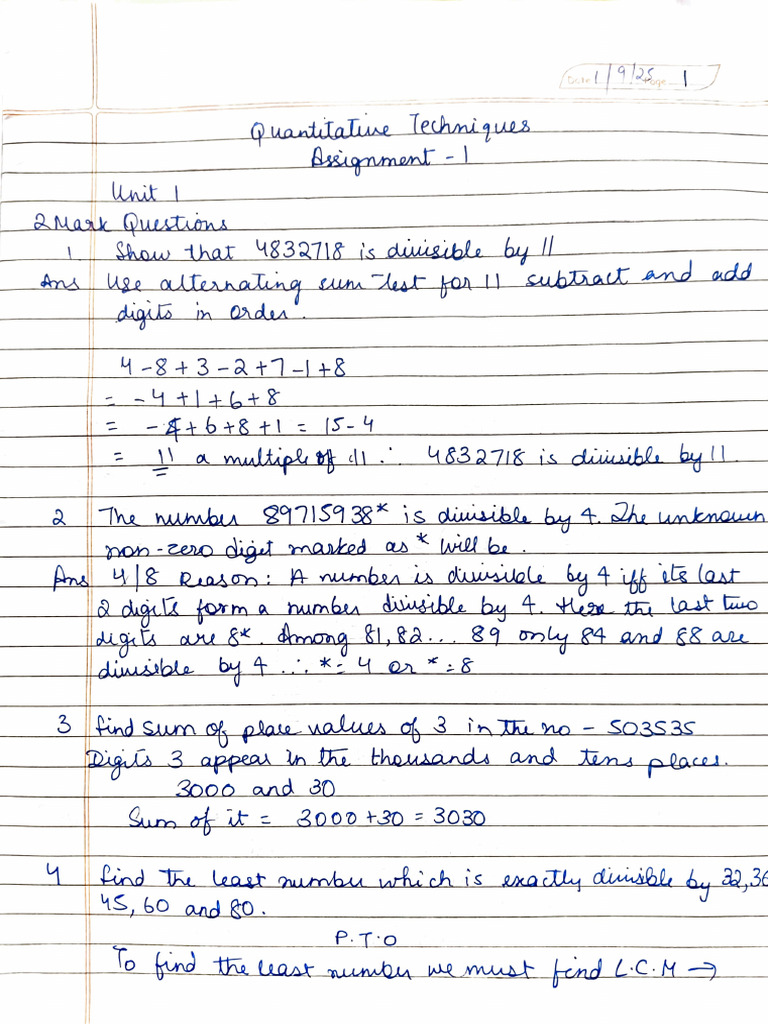 Date 1/9/25 Page 1
Quantitative Techniques
Assignment - 1
Unit 1
2 Mark Questions
1 Show that 4832718 is divisible by 11
Ans Use alternating sum Test for 11 subtract and add
digits in order.
4 - 8 + 3 - 2 + 7 - 1 + 8
= - 4 + 1 + 6 + 8
= - 4 + 6 + 8 + 1 = 15 - 4
= 11 a multiple of 11 ∴ 4832718 is divisible by 11.
2 The number 89715938* is divisible by 4. The unknown
non-zero digit marked as * will be.
Ans 4/8 Reason: A number is divisible by 4 iff its last
2 digits form a number divisible by 4. Here the last two
digits are 8*. Among 81, 82 ... 89 only 84 and 88 are
divisible by 4 ∴ * = 4 or * = 8
3 find sum of place values of 3 in the no - 503535
Digits 3 appear in the thousands and tens places.
3000 and 30
Sum of it = 3000 + 30 = 3030
4 find the least number which is exactly divisible by 32, 36
45, 60 and 80.
P.T.O
To find the least number we must find L.C.M →